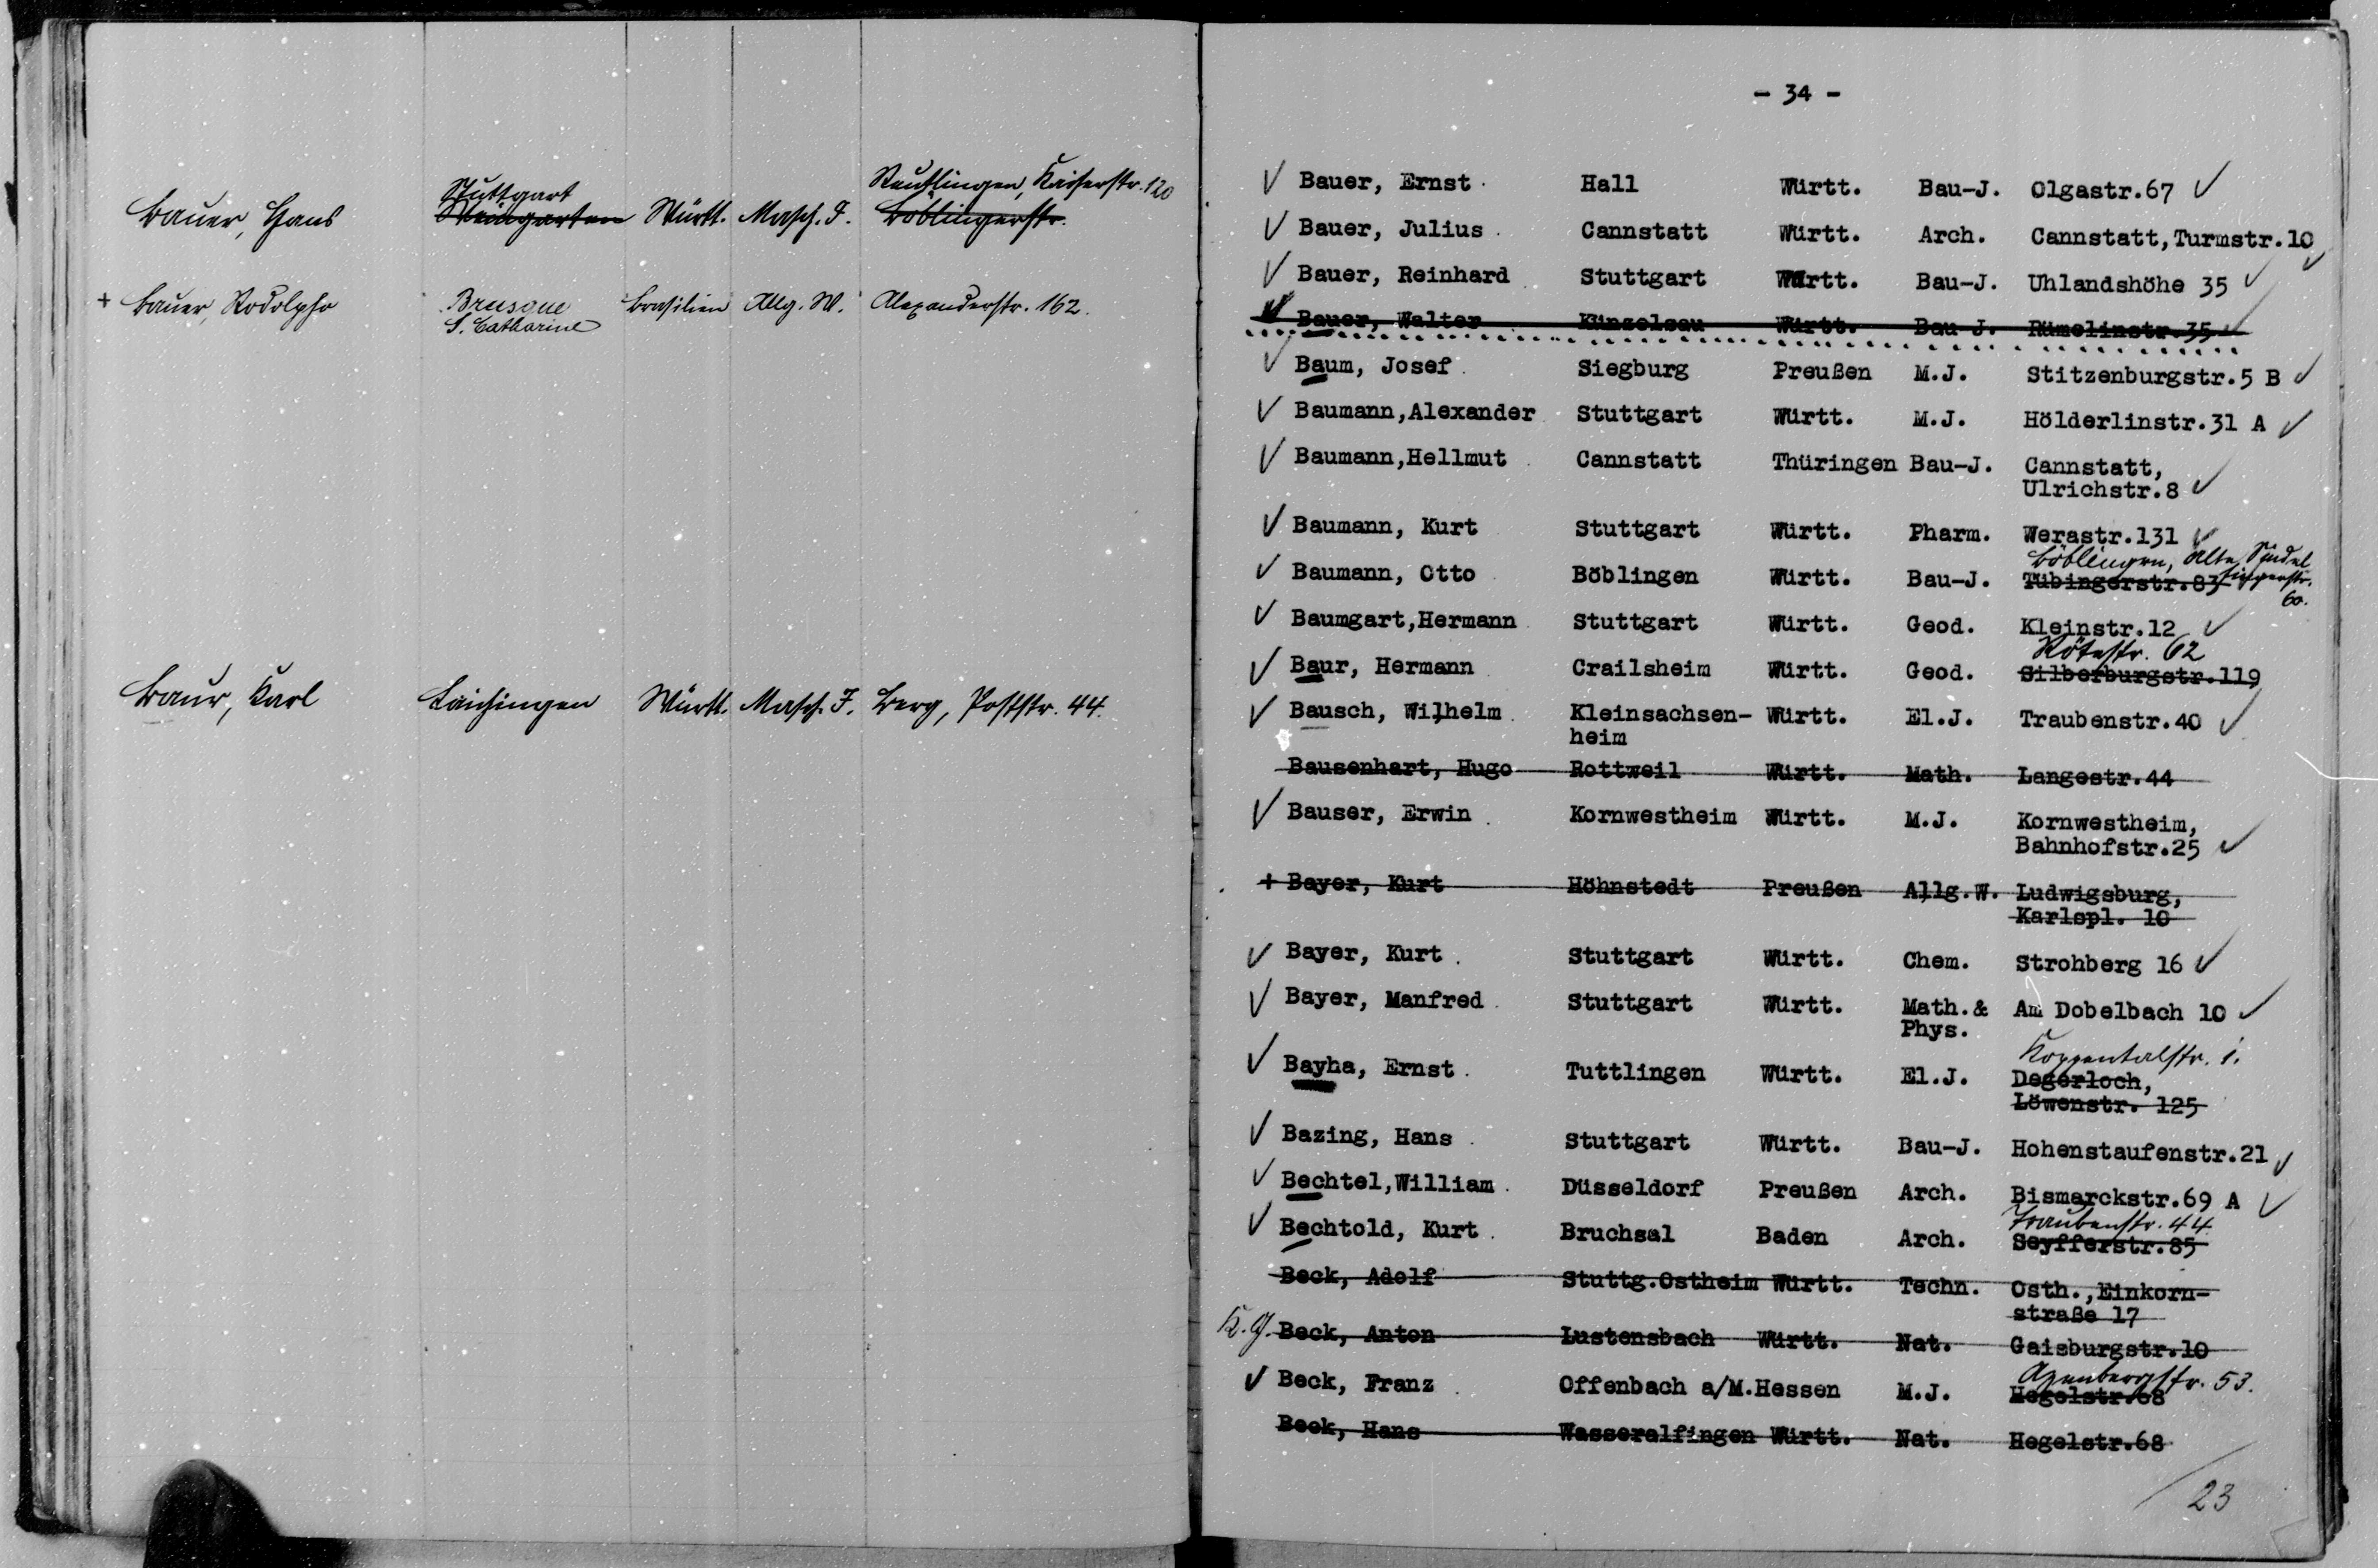 Stuttgart Reutlingen, Kaiserstr. 120
Bauer, Hans Weingarten Württ. Masch. I. Böblingerstr.
+ Bauer, Rodolpho Brusque Brasilien Allg. W. Alexanderstr. 162.
S. Catharine
Baur, Karl Laichingen Württ. Masch. I. Berg, Poststr. 44.
- 34 -
√ Bauer, Ernst Hall Württ. Bau-J. Olgastr.67 √
√ Bauer, Julius Cannstatt Württ. Arch. Cannstatt,Turmstr.10 √
√ Bauer, Reinhard Stuttgart Württ. Bau-J. Uhlandshöhe 35 √
√ Bauer, Walter Künzelsau Württ. Bau-J. Rümelinstr.35 √
√ Baum, Josef Siegburg Preußen M.J. Stitzenburgstr.5 B √
√ Baumann,Alexander Stuttgart Württ. M.J. Hölderlinstr.31 A √
√ Baumann,Hellmut Cannstatt Thüringen Bau-J. Cannstatt,
Ulrichstr.8 √
√ Baumann, Kurt Stuttgart Württ. Pharm. Werastr.131 √
Böblingen, Alte Sindel
√ Baumann, Otto Böblingen Württ. Bau-J. Tübingerstr.83 fingerstr.
60.
√ Baumgart,Hermann Stuttgart Württ. Geod. Kleinstr.12 √
Rötestr. 62
√ Baur, Hermann Crailsheim Württ. Geod. Silberburgstr.119
√ Bausch, Wilhelm Kleinsachsen- Württ. El.J. Traubenstr.40 √
heim
Bausenhart, Hugo Rottweil Württ. Math. Langestr.44
√ Bauser, Erwin Kornwestheim Württ. M.J. Kornwestheim,
Bahnhofstr.25 √
+ Bayer, Kurt Höhnstedt Preußen Allg.W. Ludwigsburg,
Karlspl. 10
√ Bayer, Kurt Stuttgart Württ. Chem. Strohberg 16 √
√ Bayer, Manfred Stuttgart Württ. Math.& Am Dobelbach 10 √
Phys.
Koppentalstr. 1.
√ Bayha, Ernst Tuttlingen Württ. El.J. Degerloch,
Löwenstr. 125
√ Bazing, Hans Stuttgart Württ. Bau-J. Hohenstaufenstr.21 √
√ Bechtel,William Düsseldorf Preußen Arch. Bismarckstr.69 A √
Traubenstr. 44
√ Bechtold, Kurt Bruchsal Baden Arch. Seyfferstr.85
Beck, Adolf Stuttg.Ostheim Württ. Techn. Osth.,Einkorn-
straße 17
K.G. Beck, Anton Lustensbach Württ. Nat. Gaisburgstr.10
Azenbergstr. 53.
√ Beck, Franz Offenbach a/M. Hessen M.J. Hegelstr.68
Beck, Hans Wasseralfingen Württ. Nat. Hegelstr.68
23